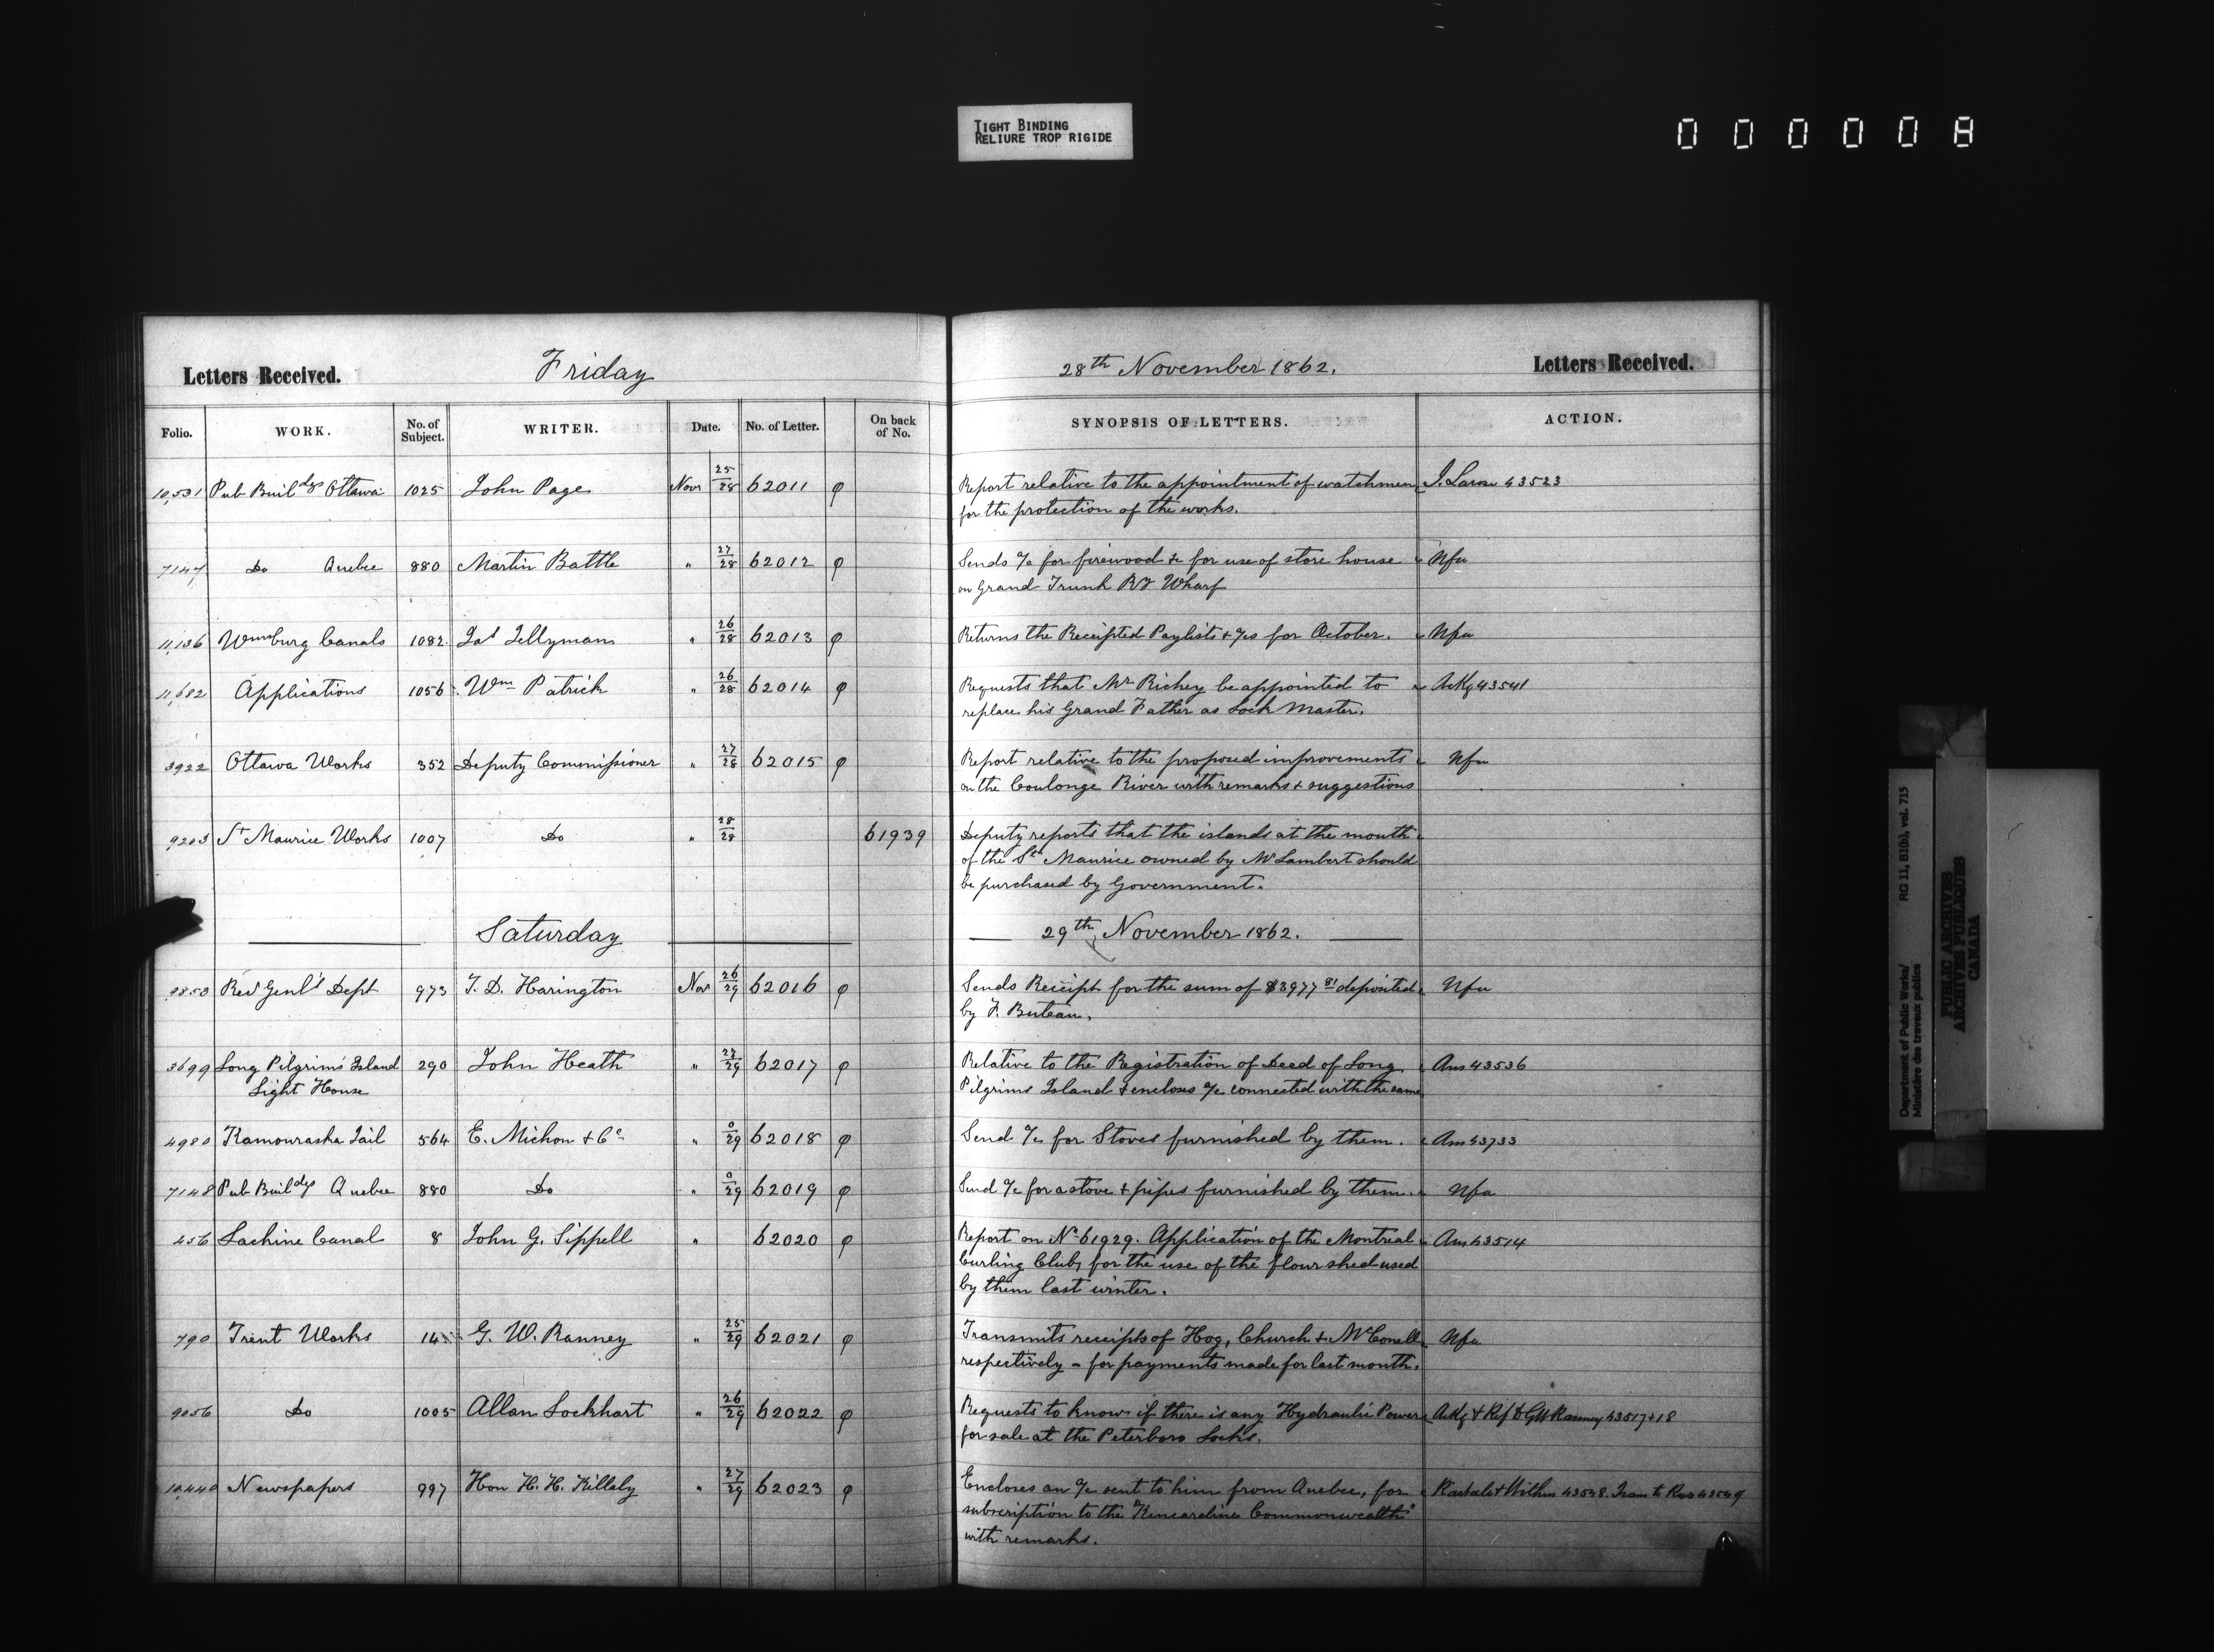 TIGHT BINDING
RELIURE TROP RIGIDE
000008
Letters Received. Friday 28th November 1862. Letters Received.
Folio. WORK. No. of Subject. WRITER. Date. No. of Letter. On back of No. SYNOPSIS OF LETTERS. ACTION.
10,531 Pub Buildgs Ottawa 1025 John Page Nov 25/28 62011 φ Report relative to the appointment of watchmen J. Larose 43523
for the protection of the works.
7147 Do Quebec 880 Martin Battle " 27/28 62012 φ Sends a/c for firewood &c for use of store house Nfa
on Grand Trunk Ry Wharf
11,136 Wmsburg Canals 1082 Jas Tellyman " 26/28 62013 φ Returns the Receipted Paylists & a/cs for October. Nfa
11,682 Applications 1056 Wm Patrick " 26/28 62014 φ Requests that Mr Richey be appointed to Ackg 43541
replace his Grand Father as Lock Master.
3922 Ottawa Works 352 Deputy Commissioner " 27/28 62015 φ Report relative to the proposed improvements Nfa
on the Coulonge River with remarks & suggestions
9203 St Maurice Works 1007 Do " 28/28 61939 Deputy reports that the islands at the mouth
of the St Maurice owned by Mr Lambert should
be purchased by Government.
Saturday 29th November 1862.
9853 Recr Genl's Dept 973 T. D. Harington Nov 26/29 62016 φ Sends Receipt for the sum of $3977 deposited Nfa
by F. Buteau.
3699 Long Pilgrims Island 290 John Heath " 27/29 62017 φ Relative to the Registration of Deed of Long Ans 43536
Light House Pilgrims Island & encloses a/c connected with the same
4980 Kamouraska Jail 564 E. Michon & Co " 0/29 62018 φ Send a/c for Stoves furnished by them. Ans 43733
7148 Pub Buildgs Quebec 880 Do " 0/29 62019 φ Send a/c for a stove & pipes furnished by them. Nfa
456 Lachine Canal 8 John G. Sippell " 62020 φ Report on No 61929. Application of the Montreal Ans 43514
Curling Club, for the use of the flour shed used
by them last winter.
790 Trent Works 14 G. W. Ranney " 25/29 62021 φ Transmits receipts of Hog, Church & McConell Nfa
respectively - for payments made for last month.
9056 Do 1005 Allan Lockhart " 26/29 62022 φ Requests to know if there is any Hydraulic Power Ackg & Ref to GW Ranney 43517+18
for sale at the Peterboro Locks.
10,440 Newspapers 997 Hon H. H. Killaly " 27/29 62023 φ Encloses an a/c sent to him from Quebec, for 43548. Trans to Ross 43549
subscription to the "Kincardine Commonwealth"
with remarks.
Department of Public Works/ RG 11, B1(b), vol. 715
Ministère des travaux publics
PUBLIC ARCHIVES
ARCHIVES PUBLIQUES
CANADA